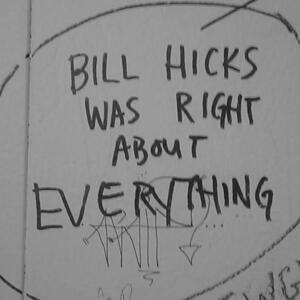 BILL HICKS
WAS RIGHT
ABOUT
EVERYTHING